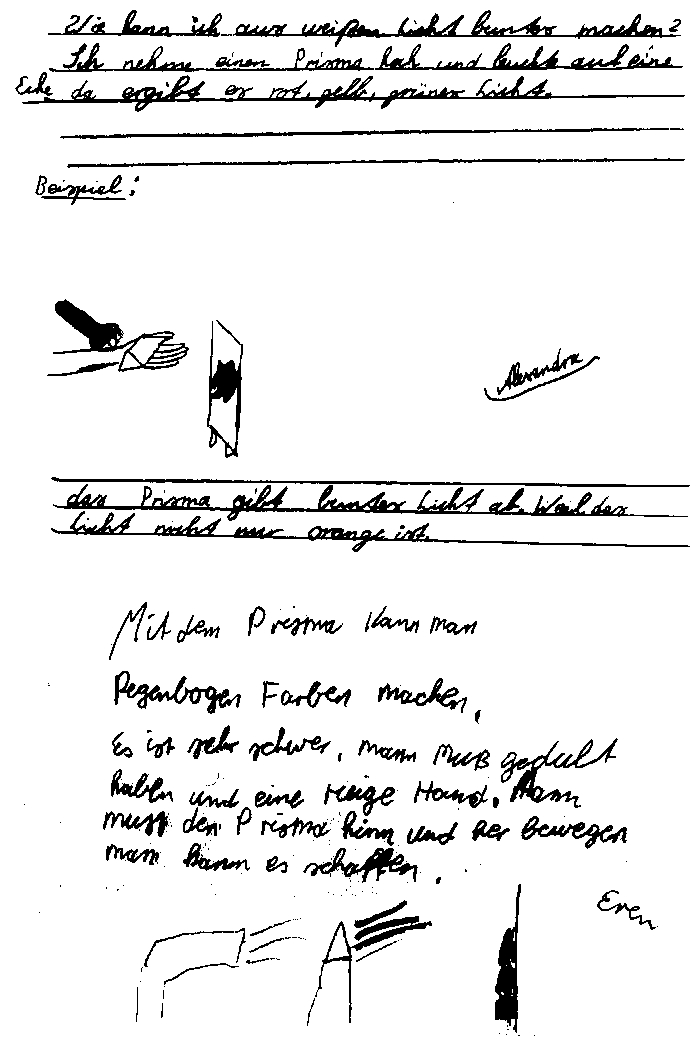 Wie kann ich aus weißen Licht buntes machen?
Ich nehme einen Prisma hoh und leuchte auf eine
Ecke da ergibt es rot, gelb, grünes Licht.
Beispiel:
Alexandra
das Prisma gibt buntes Licht ab. Weil das
Licht nicht nur orange ist.
Mit dem Prisma Kann man
Regenbogen Farben machen.
Es ist sehr schwer, mann Muß gedult
haben und eine ruige Hand. Mann
muss den Prisma hinn und her bewegen
mann kann es schaffen.
Eren